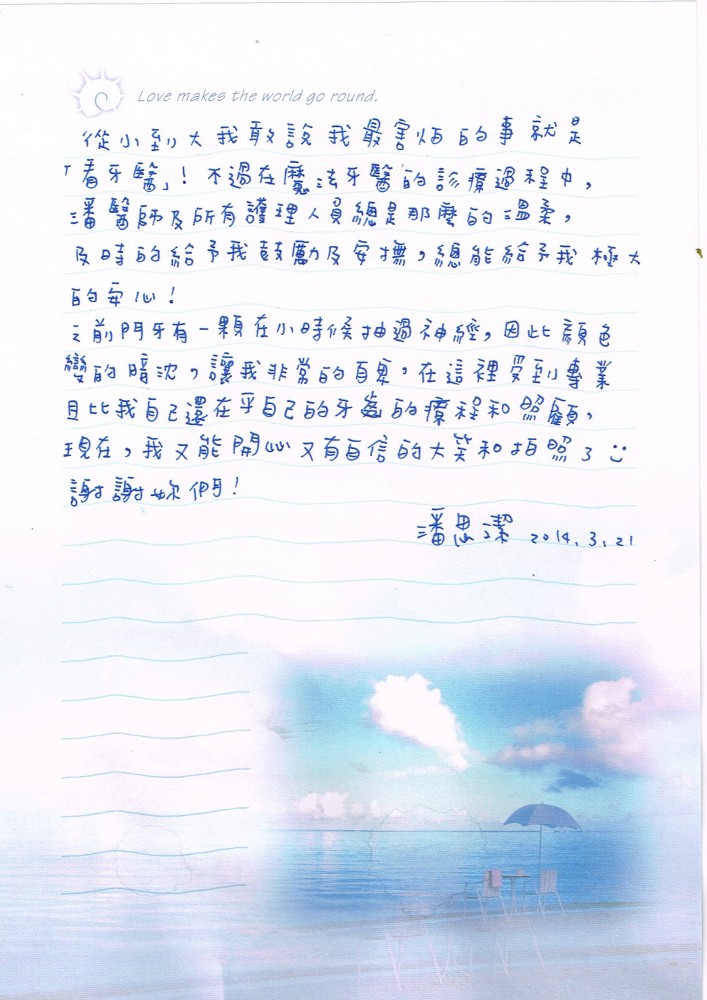 Love makes the world go round.
從小到大我敢說我最害怕的事就是
「看牙醫」！不過在魔法牙醫的診療過程中，
潘醫師及所有護理人員總是那麼的溫柔，
及時的給予我鼓勵及安撫，總能給予我極大
的安心！
之前門牙有一顆在小時候抽過神經，因此顏色
變的暗沈，讓我非常的自卑，在這裡受到專業
且比我自己還在乎自己的牙齒的療程和照顧，
現在，我又能開心又有自信的大笑和拍照了
謝謝妳們！
潘思潔 2014.3.21